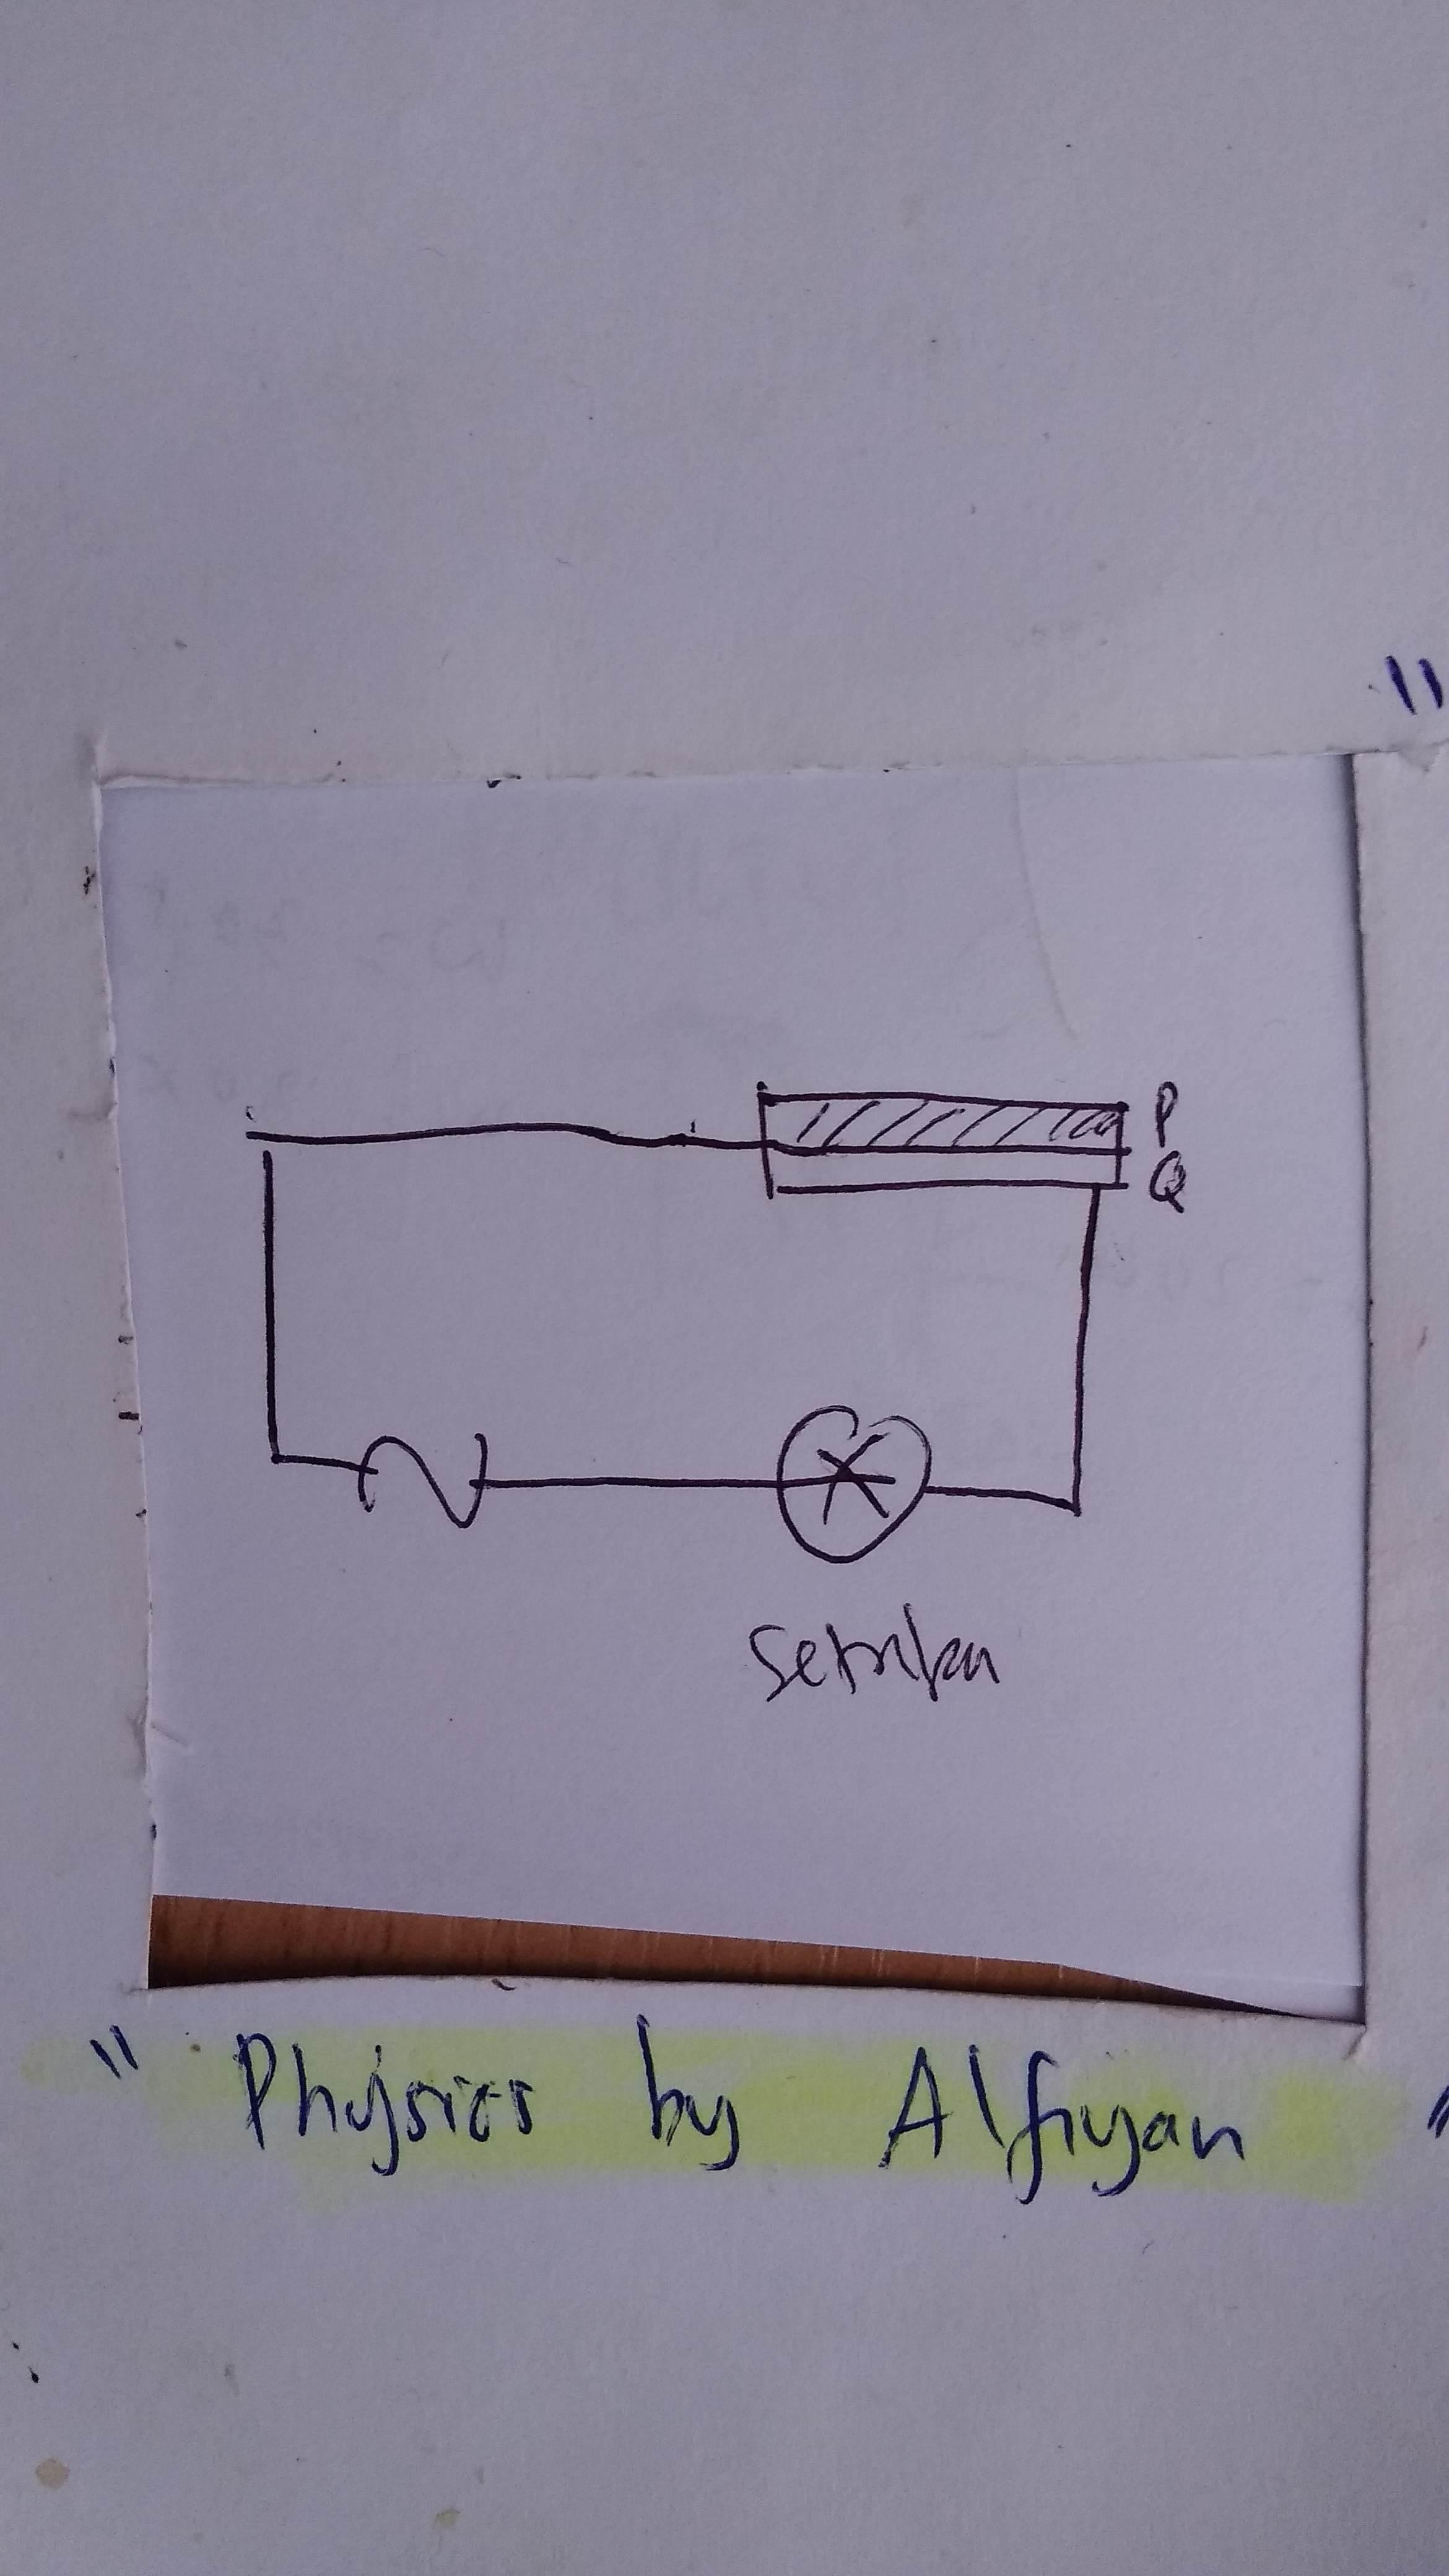 "
P
Q
setrika
" Physics by Alfiyan "